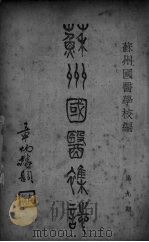 蘇州國醫學校編
第九期
蘇州國醫雜誌
章炳麟題
www.mtoou.info 
mtoou.info